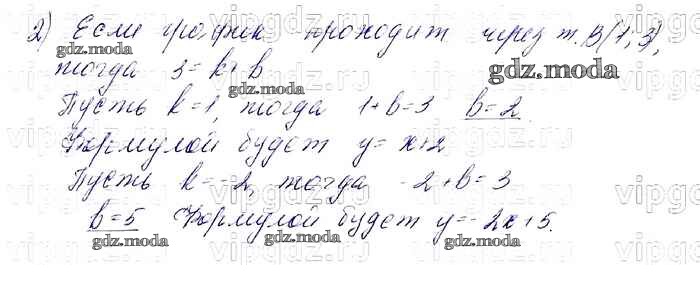 2) Если график проходит через т. B(1; 3),
тогда 3 = k + b
Пусть k = 1, тогда 1 + b = 3 b = 2
Формулой будет y = x + 2
Пусть k = -2, тогда -2 + b = 3
b = 5 Формулой будет y = -2x + 5.
gdz.moda
gdz.moda
gdz.moda
gdz.moda
gdz.moda
gdz.moda